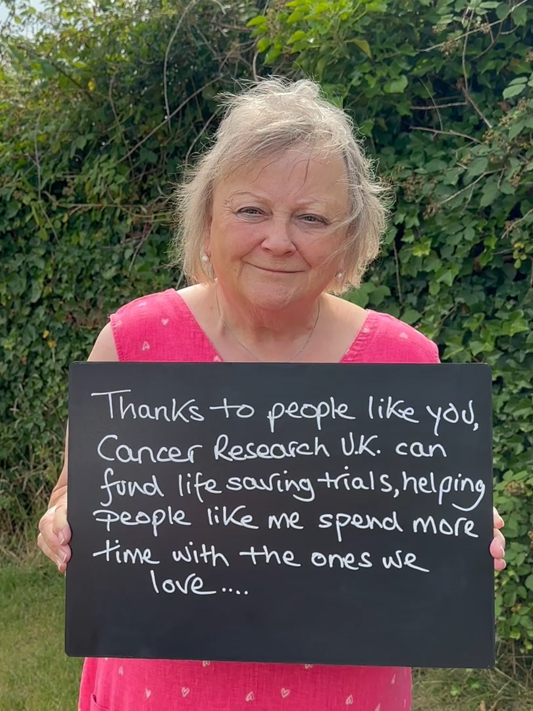 Thanks to people like you,
Cancer Research U.K. can
fund life saving trials, helping
people like me spend more
time with the ones we
love....